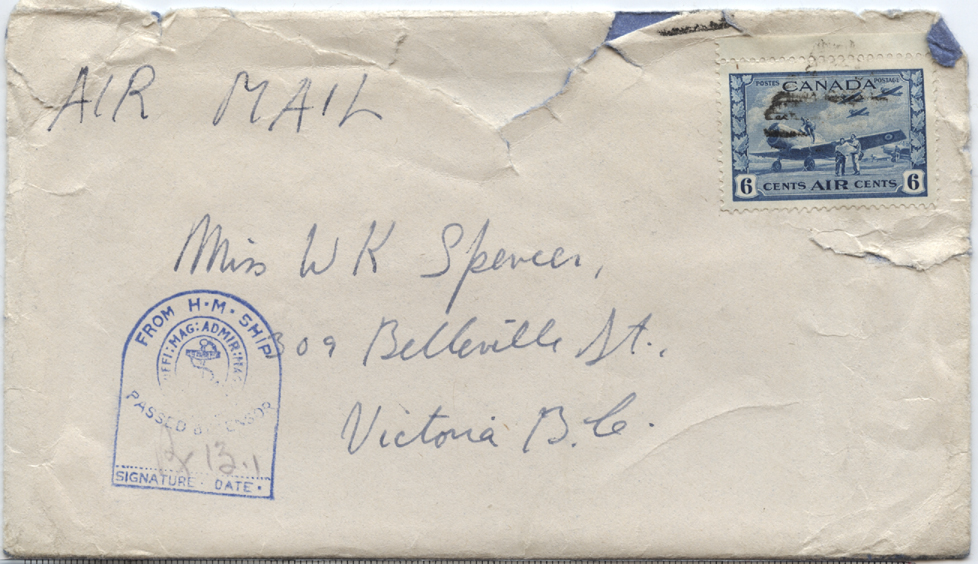 AIR MAIL
POSTES POSTAGE
CANADA
6 CENTS AIR CENTS 6
Miss W K Spencer,
309 Belleville St.,
Victoria B.C.
FROM H·M·SHIP
OFFI:MAG:ADMIR:MAG
PASSED BY CENSOR
13.1
SIGNATURE· DATE·